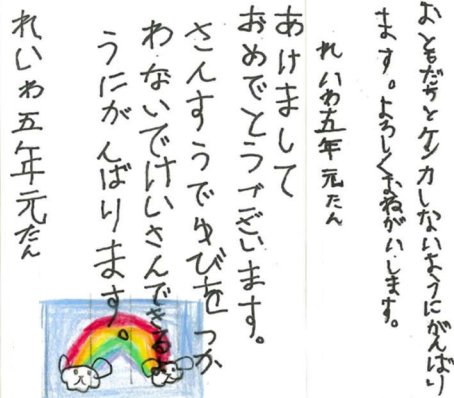 おともだちとケンカしないようにがんばり
ます。よろしくおねがいします。
れいわ五年元たん
あけまして
おめでとうございます。
さんすうでゆびをつか
わないでけいさんできるよ
うにがんばります。
れいわ五年元たん